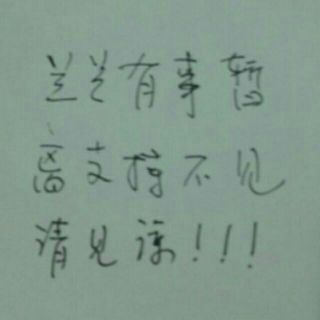 兰兰有事暂
离 不见
请见谅!!!